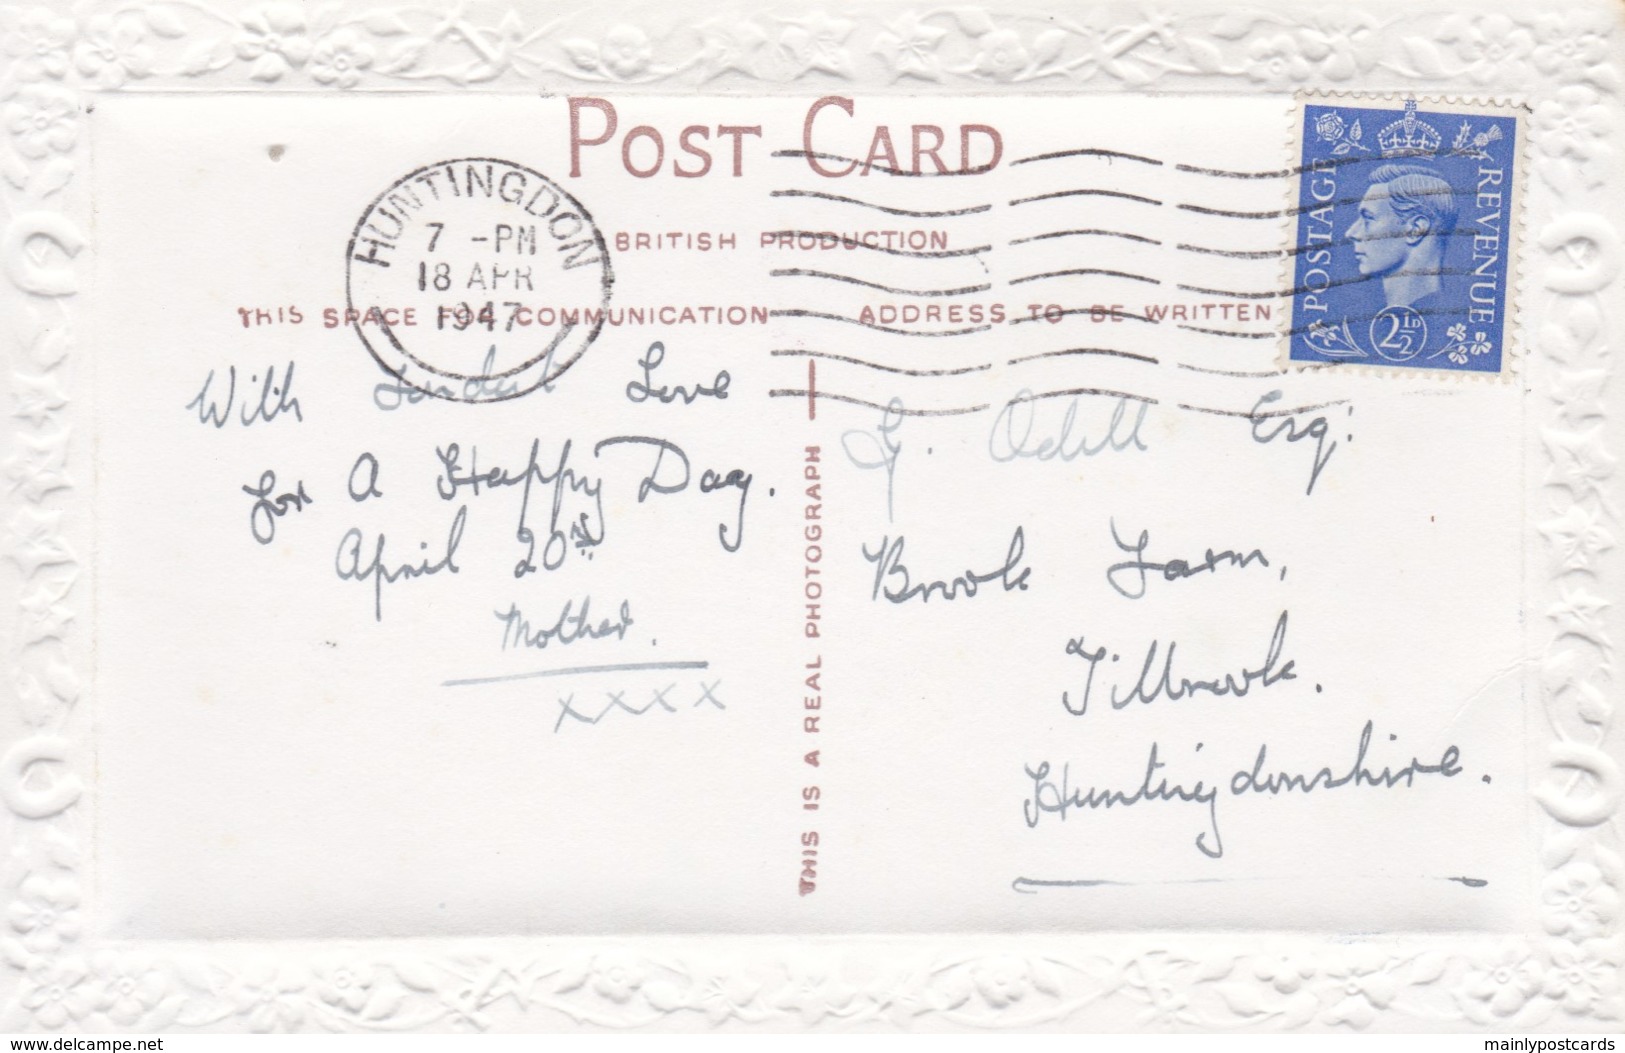 POST CARD
HUNTINGDON
7 -PM
18 APR
1947
BRITISH PRODUCTION
POSTAGE
REVENUE
2½D
THIS SPACE FOR COMMUNICATION
ADDRESS TO BE WRITTEN
With Love
for A Happy Day.
April 20th
Mother.
xxxx
THIS IS A REAL PHOTOGRAPH
Odell Esq:
Brook Farm,
Tillbrook.
Huntingdonshire.
www.delcampe.net
mainlypostcards